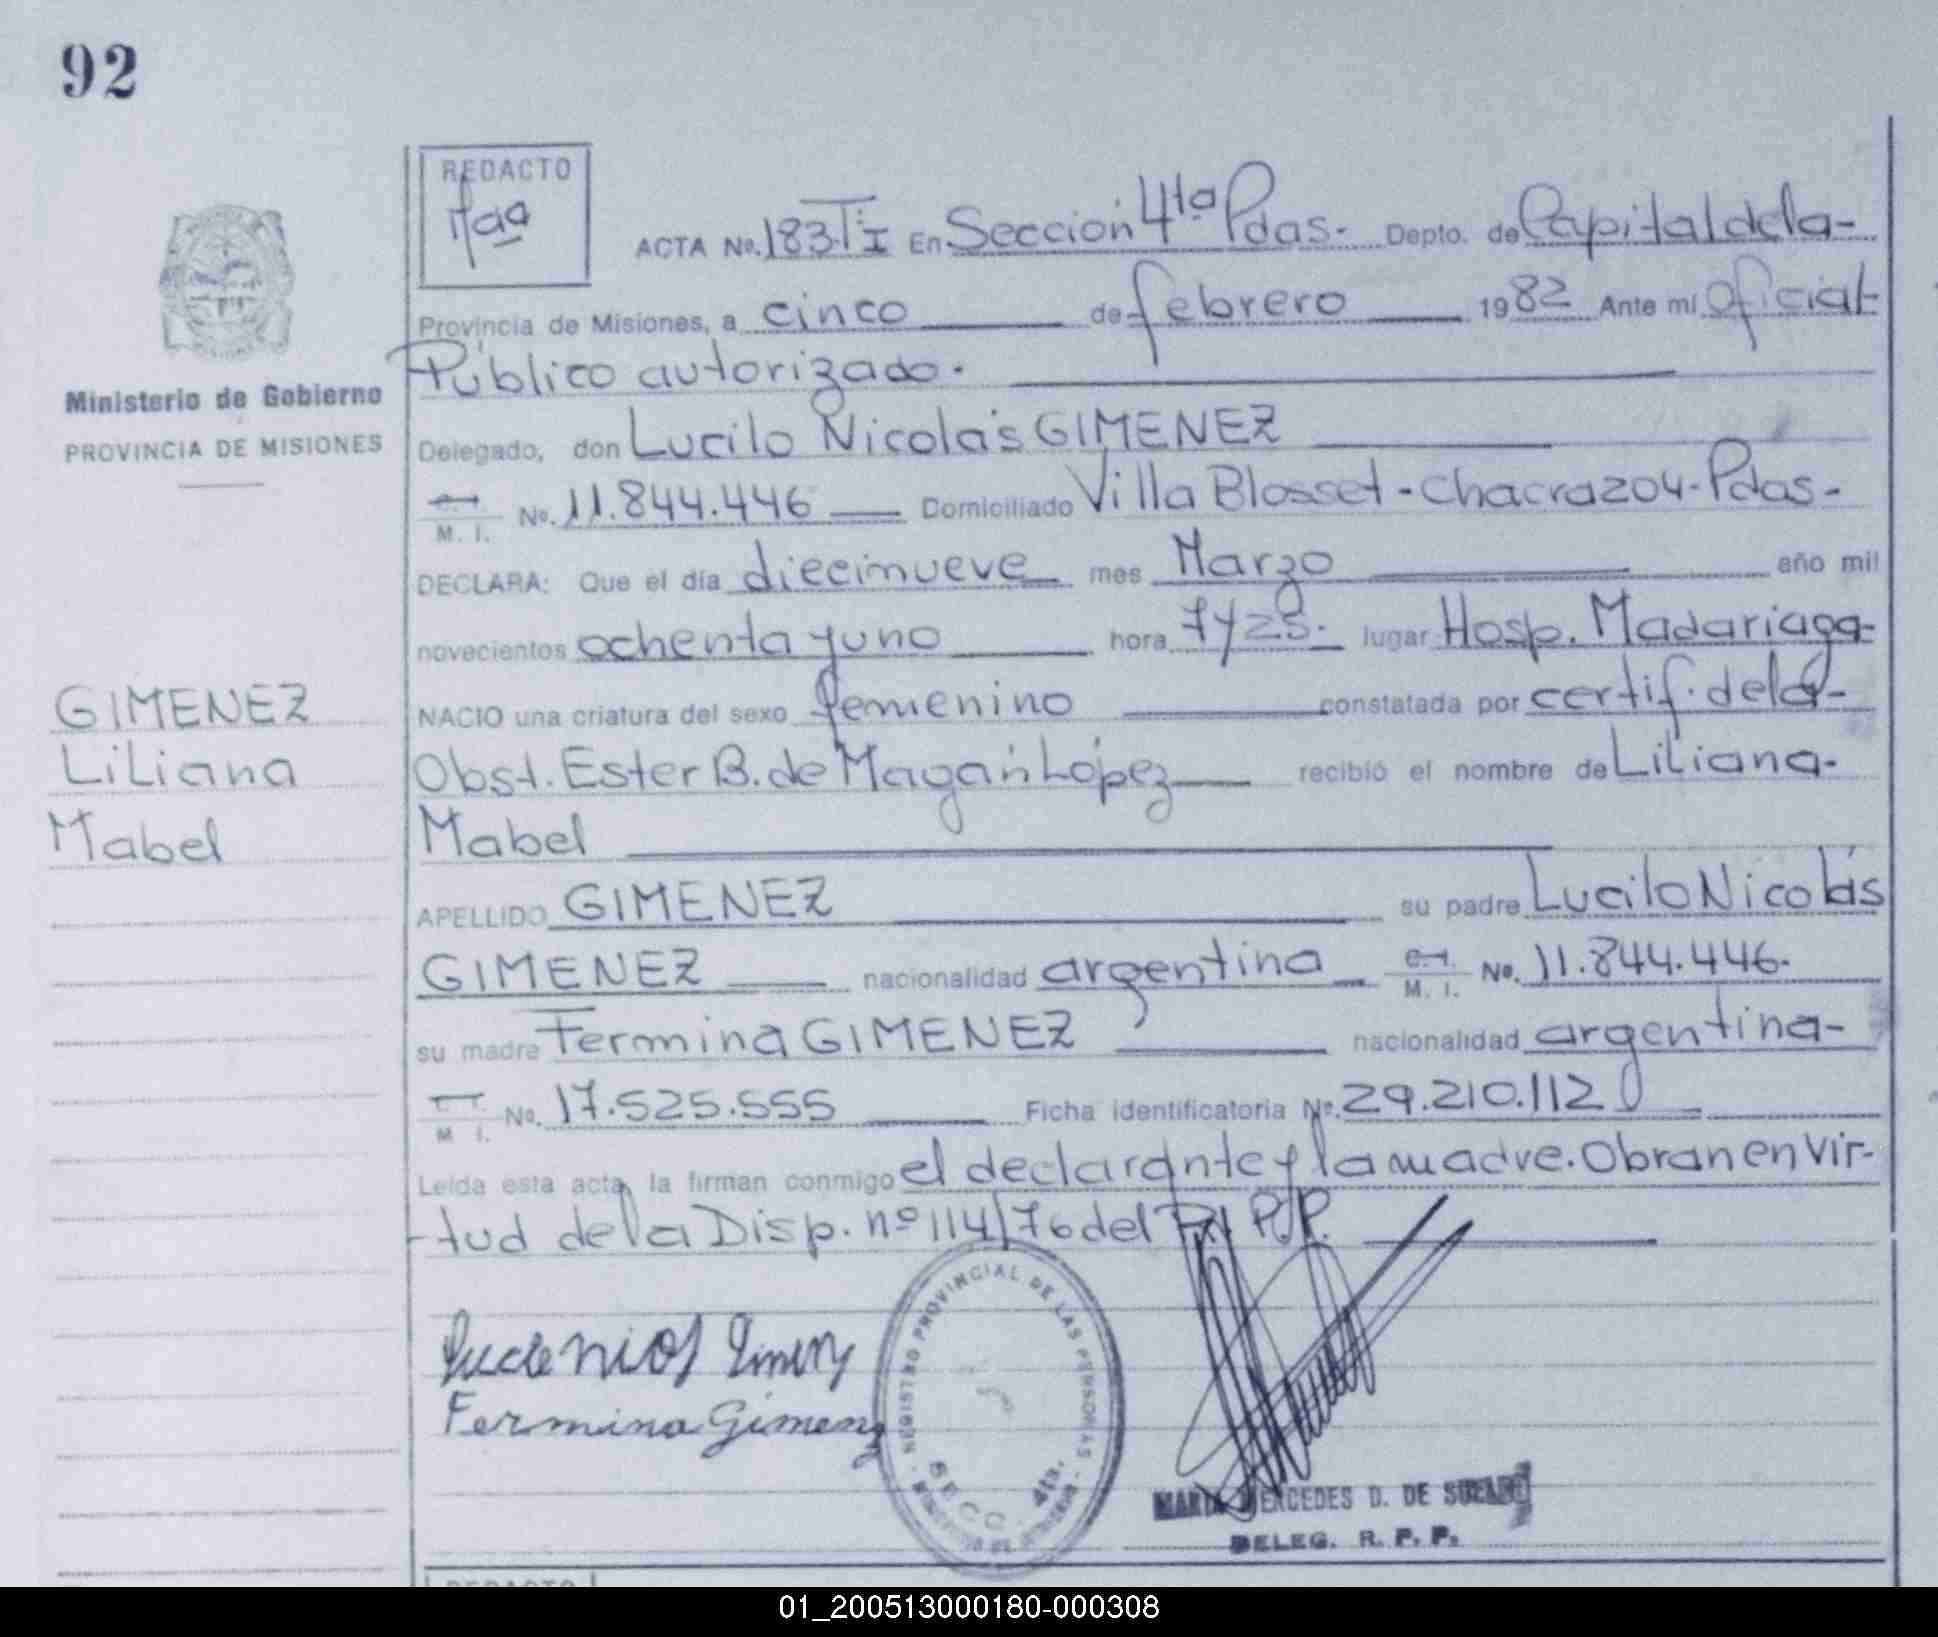 92
REDACTO
ACTA No. 183.TI En Sección 4ta Pdas. Depto. de Capital de la-
Provincia de Misiones, a cinco de febrero 1982 Ante mí Oficial
Público autorizado.
Ministerio de Gobierno
PROVINCIA DE MISIONES
Delegado, don Lucilo Nicolás GIMENEZ
M. I. No. 11.844.446 Domiciliado Villa Blosset - Chacra 204 - Pdas-
DECLARA: Que el día diecinueve mes Marzo año mil
novecientos ochenta y uno hora 7 y 25. lugar Hosp. Madariaga-
NACIO una criatura del sexo femenino constatada por certif. de la-
Obst. Ester B. de Magán López recibió el nombre de Liliana-
Mabel
GIMENEZ
Liliana
Mabel
APELLIDO GIMENEZ su padre Lucilo Nicolás
GIMENEZ nacionalidad argentina C.I. M. I. No. 11.844.446.
su madre Fermina GIMENEZ nacionalidad argentina-
M I. No. 17.525.555 Ficha identificatoria No. 29.210.112
Leída esta acta, la firman conmigo el declarante y la madre. Obran en vir-
tud de la Disp. nº 114/76 del R P.P.
Fermina Gimenez
REGISTRO PROVINCIAL DE LAS PERSONAS
SECC. 4ta.
MARIA MERCEDES D. DE
DELEG. R. P. P.
REDACTO
01_200513000180-000308